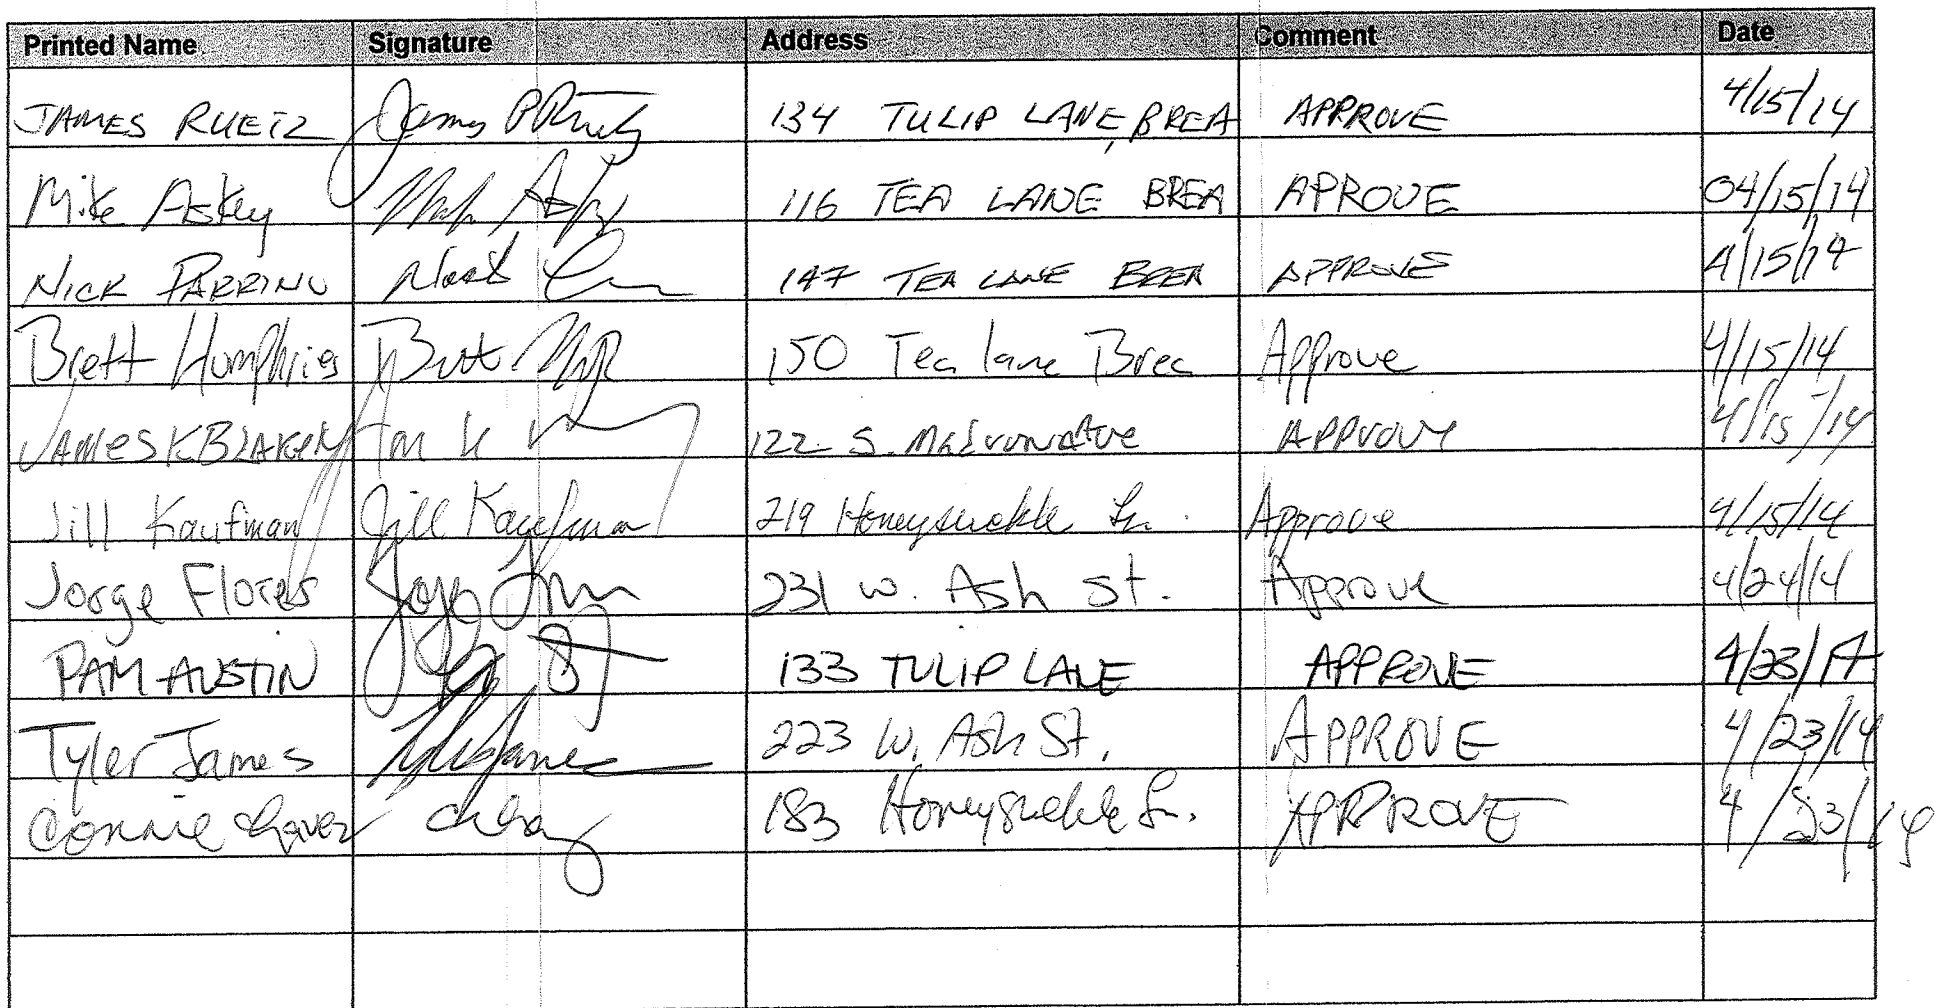 Printed Name Signature Address Comment Date
JAMES RUETZ James P Ruetz 134 TULIP LANE, BREA APPROVE 4/15/14
Mike Askey 116 TEA LANE BREA APROVE 04/15/14
NICK PARRINO 147 TEA LANE BREA APPROVE 4/15/14
Brett Humphries Brett 150 Tea lane Brea Approve 4/15/14
JAMES K 122 S. APPROVE 4/15/14
Jill Kaufman Jill Kaufman 219 Honeysuckle Ln. Approve 4/15/14
Jorge Flores 231 w. Ash st. Approve 4/24/14
PAM AUSTIN 133 TULIP LANE APPROVE 4/23/14
Tyler James 223 W. Ash St. APPROVE 4/23/14
Connie Chavez 183 Honeysuckle Ln. APPROVE 4/23/14